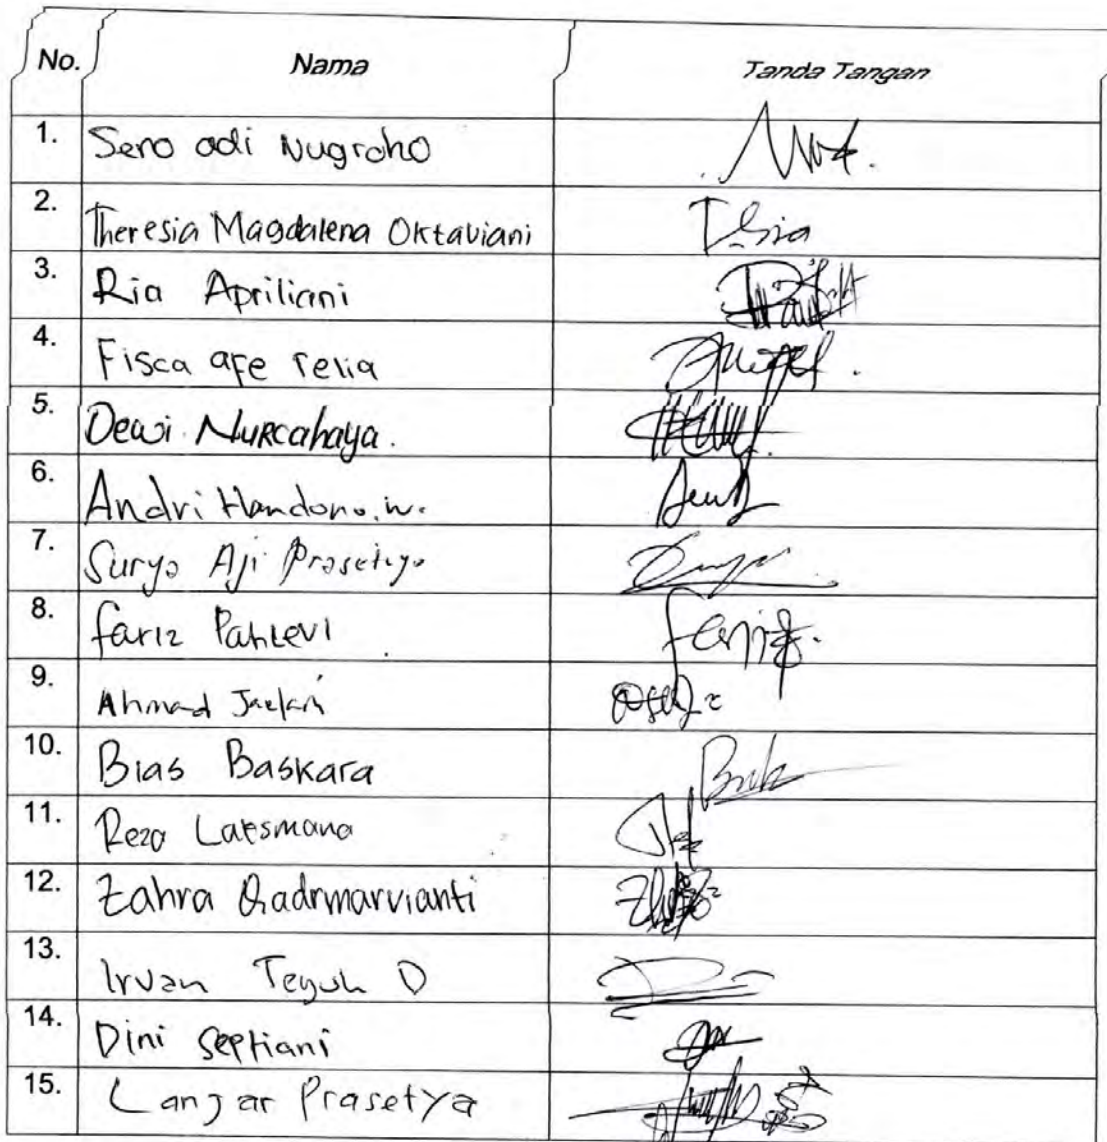 No. Nama Tanda Tangan
1. Seno adi Nugroho
2. Theresia Magdalena Oktaviani
3. Ria Apriliani
4. Fisca afe relia
5. Dewi Nurcahaya.
6. Andri Handono.w.
7. Suryo Aji Prasetyo
8. Fariz Pahlevi
9. Ahmad Jaelani
10. Bias Baskara
11. Reza Laksmana
12. Zahra
13. Irvan Teguh D
14. Dini Septiani
15. Lanjar Prasetya